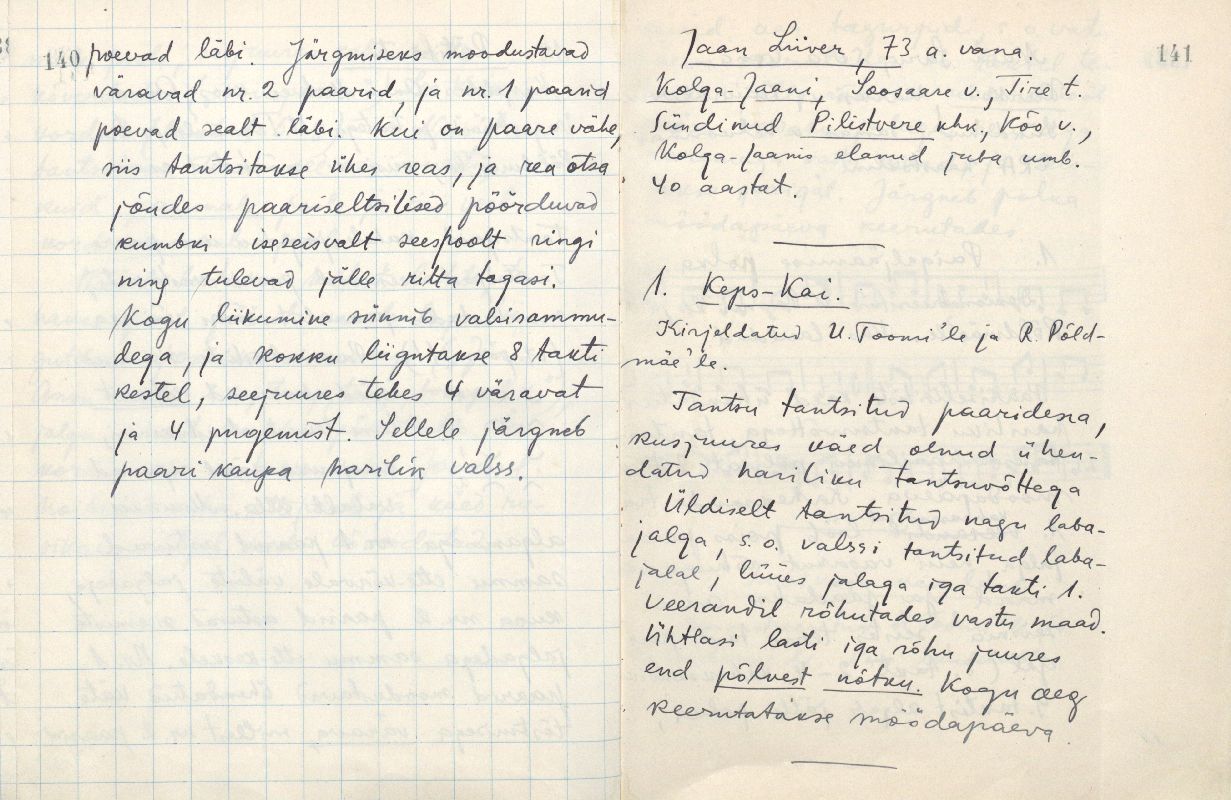 140
poevad läbi. Järgmiseks moodustavad
väravad nr. 2 paarid, ja nr. 1 paarid
poevad sealt läbi. Kui on paare vähe,
siis tantsitakse ühes reas, ja rea otsa
jõudes paariseltsilised pöörduvad
kumbki iseseisvalt seespoolt ringi
ning tulevad jälle ritta tagasi.
Kogu liikumine sünnib valsisammu-
dega, ja kokku liigutakse 8 takti
kestel, seejuures tehes 4 väravat
ja 4 pugemist. Sellele järgneb
paari kaupa harilik valss.
141
Jaan Liiver, 73 a. vana.
Kolga-Jaani, Soosaare v., Tire t.
Sündinud Pilistvere khk., Kõo v.,
Kolga-Jaanis elanud juba umb.
40 aastat.
1. Keps-Kai.
Kirjeldatud U. Toomi'le ja R. Põld-
mäe'le.
Tantsu tantsitud paaridena,
kusjuures käed olnud ühen-
datud hariliku tantsuvõttega
Üldiselt tantsitud nagu laba-
jalga, s.o. valssi tantsitud laba-
jalal, lüües jalaga iga takti 1.
veerandil rõhutades vastu maad.
Ühtlasi lasti iga rõhu juures
end põlvest nõtku. Kogu aeg
keerutatakse möödapäeva.